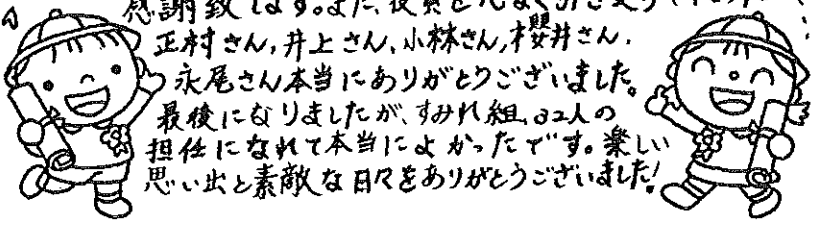 感謝致します。また、役員を心よく引き受け
正村さん,井上さん,小林さん,櫻井さん,
永尾さん本当にありがとうございました。
最後になりましたが、すみれ組、32人の
担任になれて本当によかったです。楽しい
思い出と素敵な日々をありがとうございました!